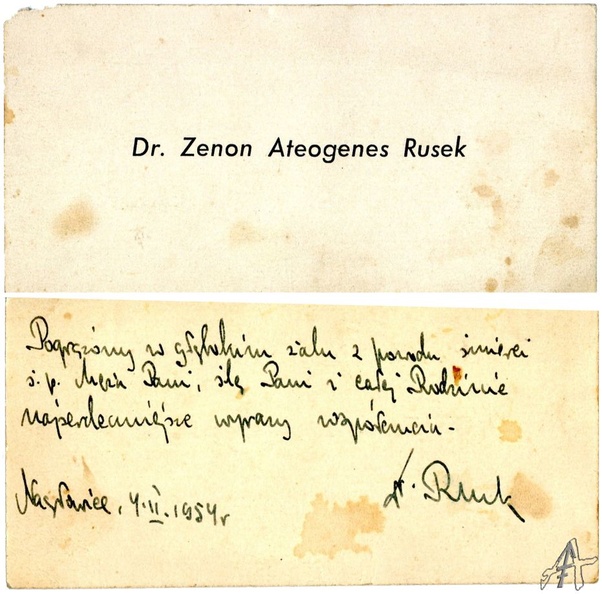 Dr. Zenon Ateogenes Rusek
Pogrążony w głębokim żalu z powodu śmierci
ś.p. Męża Pani, ślę Pani i całej Rodzinie
najserdeczniejsze wyrazy współczucia -
Nagłowice, 4.II.1954 r
Rusek